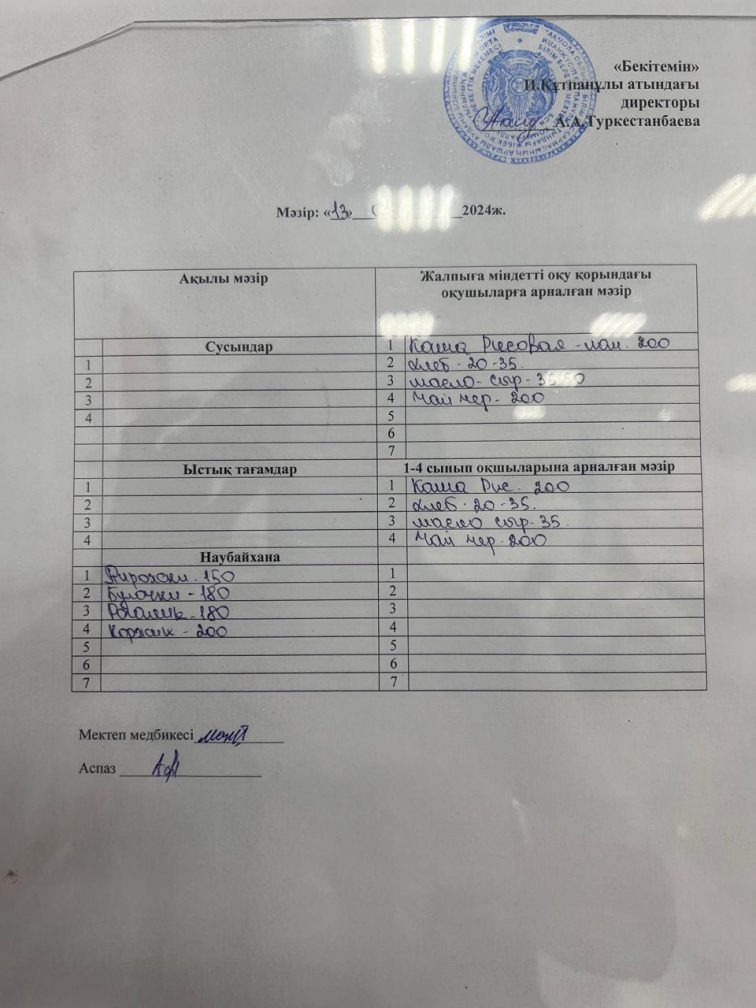 «Бекітемін»
И.Құтпанұлы атындағы
директоры
А.А.Туркестанбаева
Мәзір: «13» 2024ж.
Ақылы мәзір
Жалпыға міндетті оқу қорындағы
оқушыларға арналған мәзір
Сусындар
1 Каша Рисовая - мол. 200
1
2 Хлеб - 20 - 35.
2
3 масло - сыр - 35
3
4 Чай чер - 200
4
5
6
7
Ыстық тағамдар
1-4 сынып оқшыларына арналған мәзір
1
1 Каша Рис. 200
2
2 Хлеб - 20 - 35.
3
3 масло сыр - 35.
4
4 Чай чер - 200
Наубайхана
1 Пирожки. 150
1
2 Булочки - 180
2
3 Рогалик - 180
3
4 Коржик - 200
4
5
5
6
6
7
7
Мектеп медбикесі
Аспаз